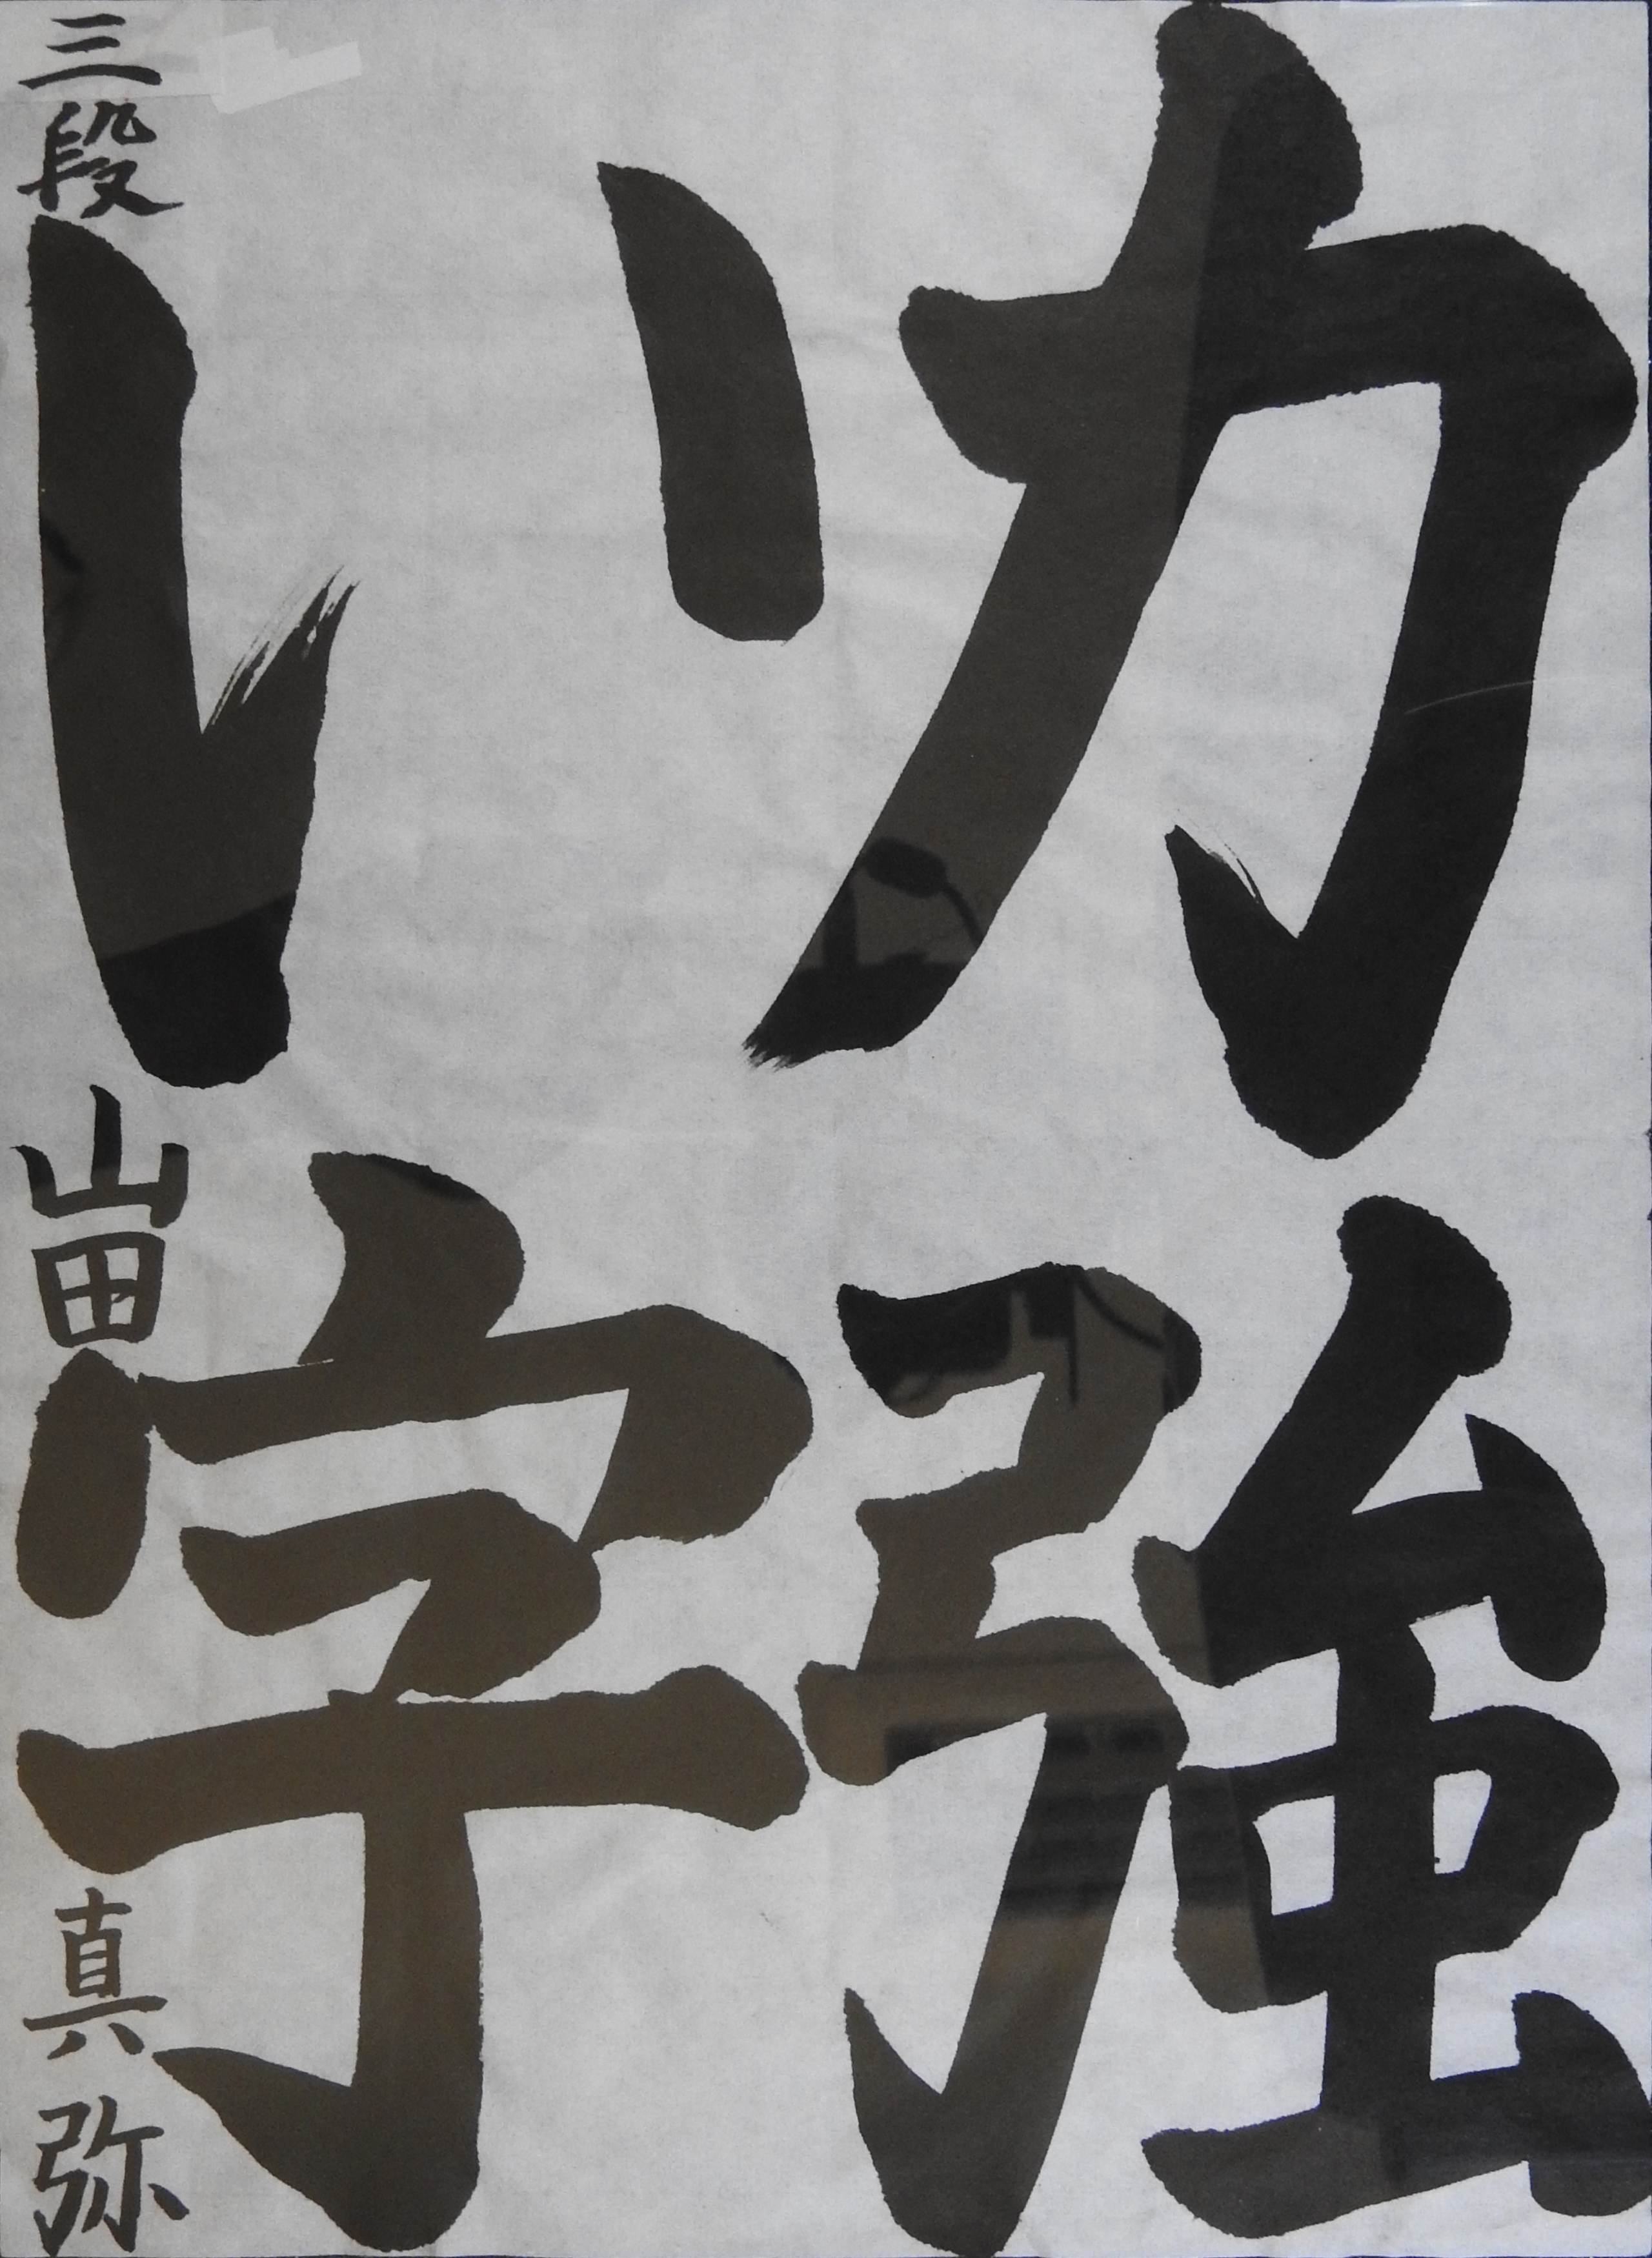 力強
い字
三段 山田真弥